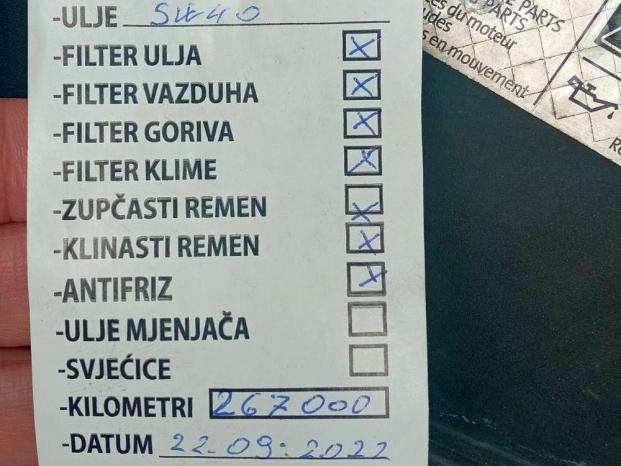 -ULJE 5W40
-FILTER ULJA
-FILTER VAZDUHA
-FILTER GORIVA
-FILTER KLIME
-ZUPČASTI REMEN
-KLINASTI REMEN
-ANTIFRIZ
-ULJE MJENJAČA
-SVJEĆICE
-KILOMETRI 267000
-DATUM 22.09.2022
PARTS
PARTS
du moteur
en mouvement